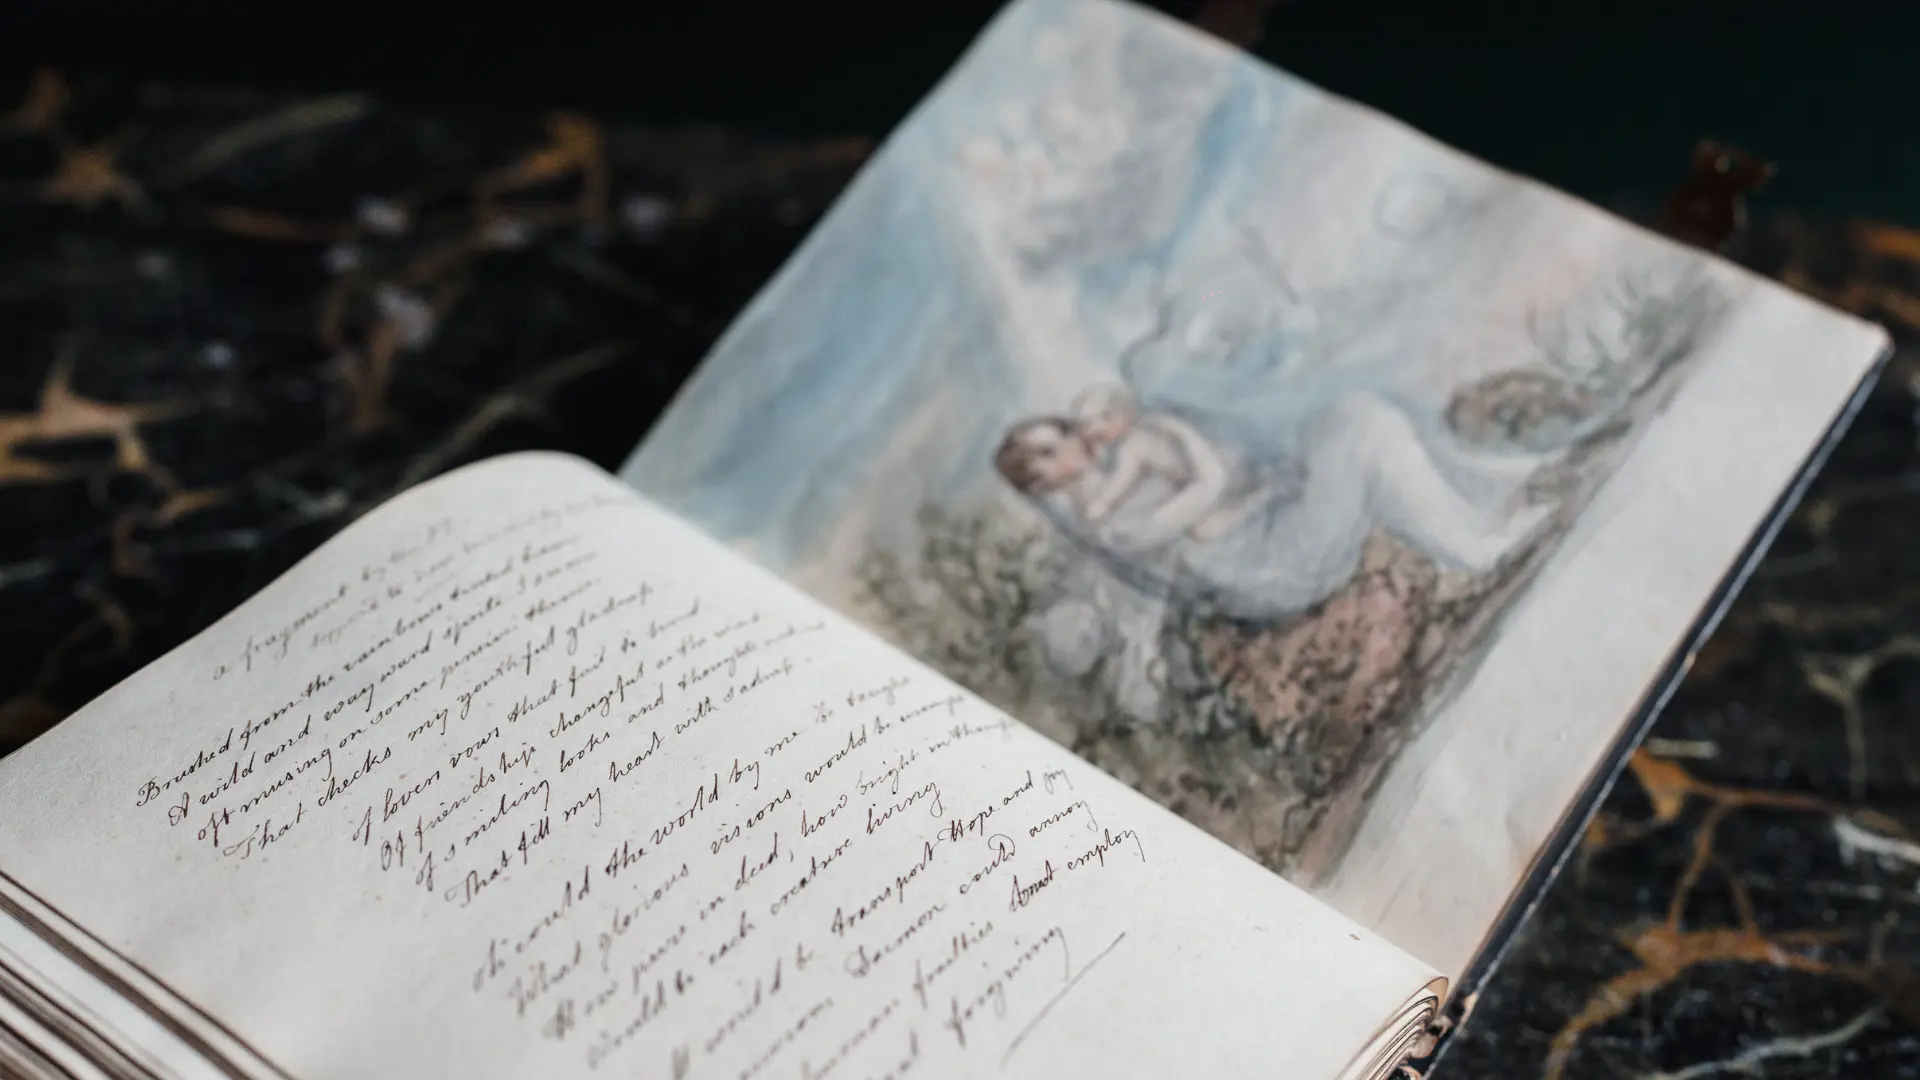 a fragment by
to
Brushed from the rainbows tinted beam
A wild and wayward sprite I
oft musing on some pensive theme
That checks my youthful gladness
Of lovers vows that fail to bind
Of friendship changeful as the wind
of smiling looks and thoughts unkind
That fill my heart with sadness -
oh could the world by me be taught
What glorious visions would be
How pure in deed, how bright in thought
Would be each creature living
would be transport Hope and joy
Daemon could annoy
human frailties but employ
forgiving